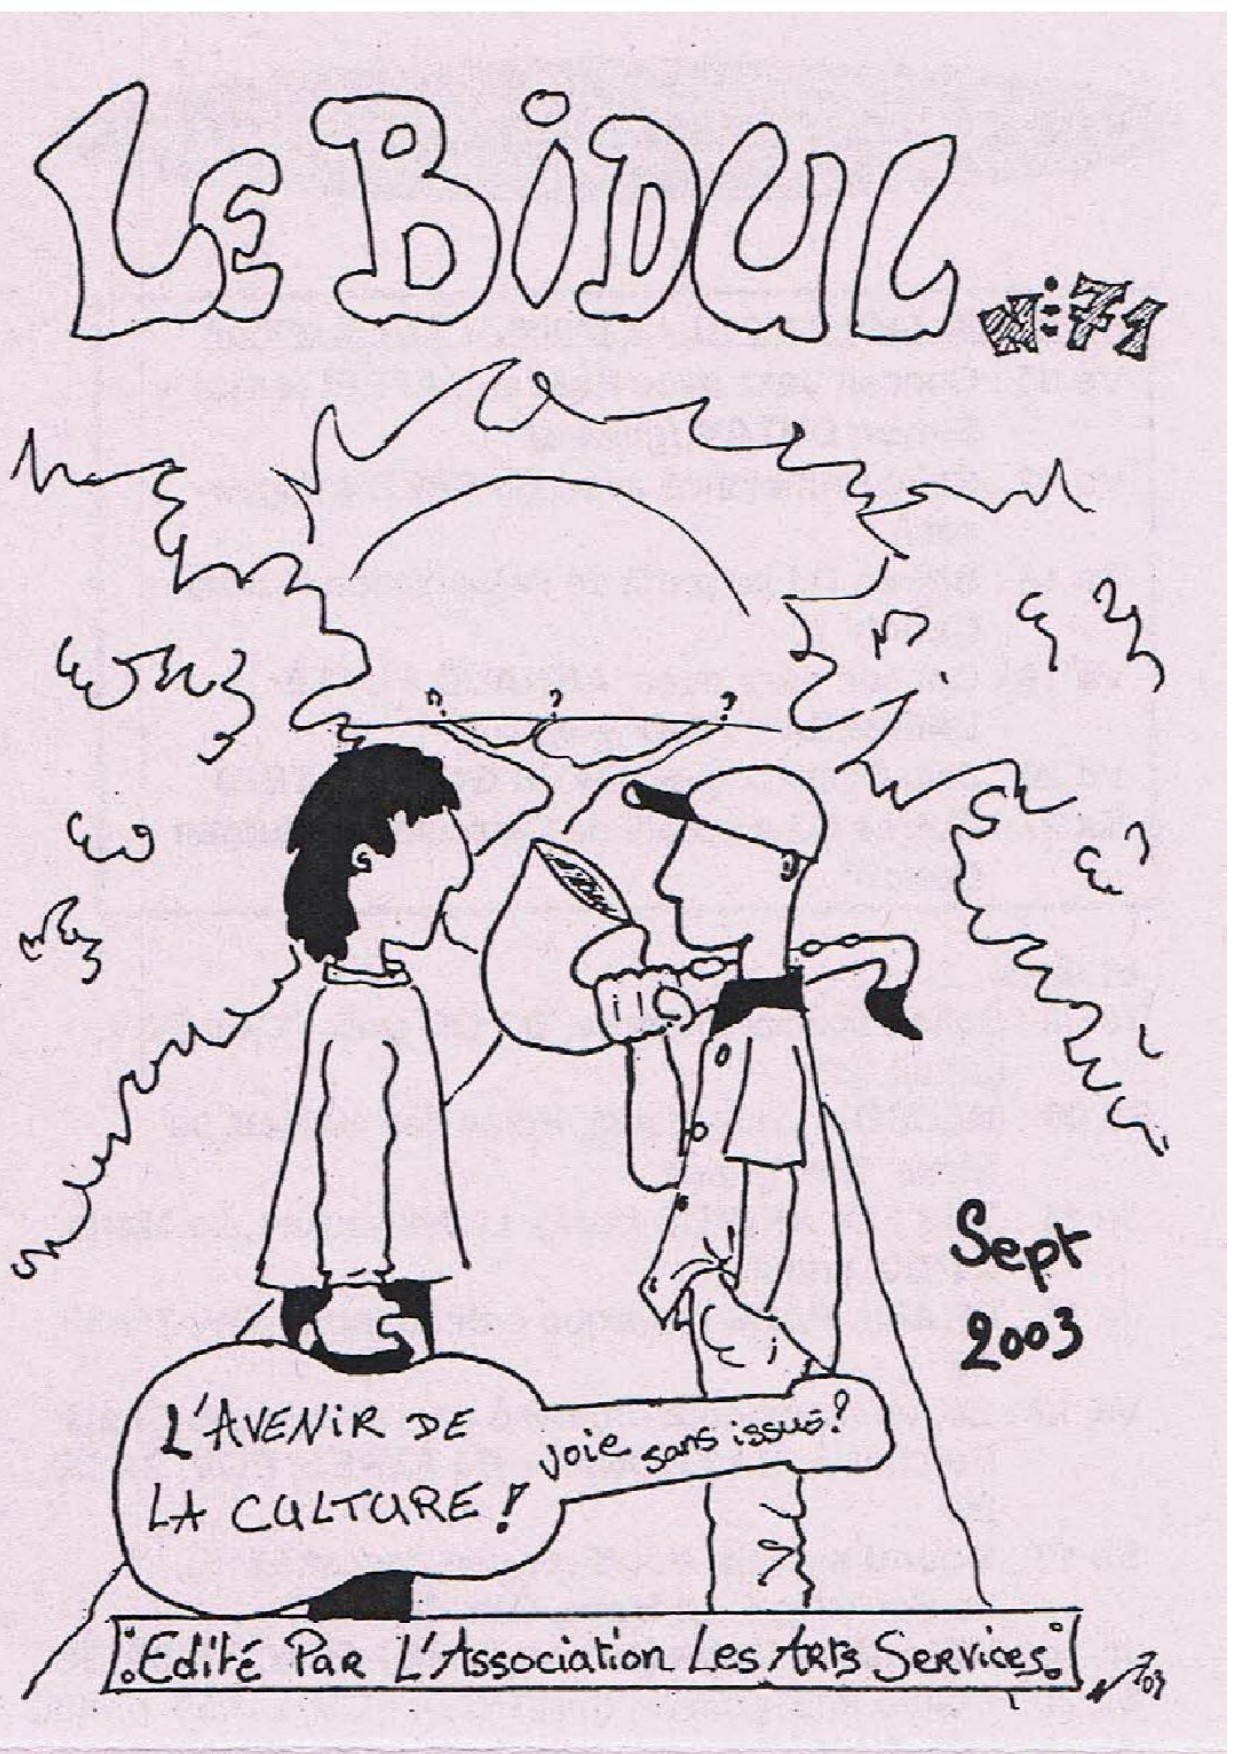 LE BiDUL
n:71
? ? ?
Sept
2003
L'AVENIR DE
LA CULTURE!
voie sans issue?
Edité Par L'Association Les Arts Services